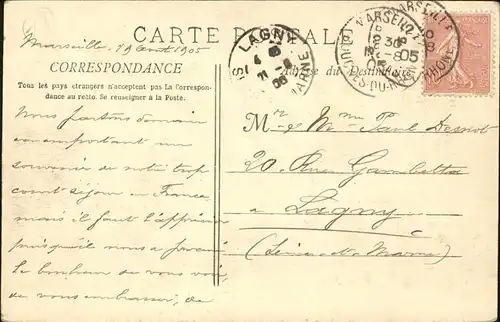 CARTE POSTALE
Marseille, 19 Août 1905
CORRESPONDANCE
Tous les pays étrangers n'acceptent pas la Correspon-
dance au recto. Se renseigner à la Poste.
Adresse du Destinataire
LAGNY
MARNE
MARSEILLE
BOUCHES-DU-RHONE
Nous partons demain
en emportant un
souvenir de notre trop
court séjour en France
mais il faut l'apprécier
puisqu'il nous a procuré
le bonheur de vous voir,
de vous embrasser, de
Mr & Mme Paul
20, Rue Gambetta
à Lagny
(Seine-et-Marne)